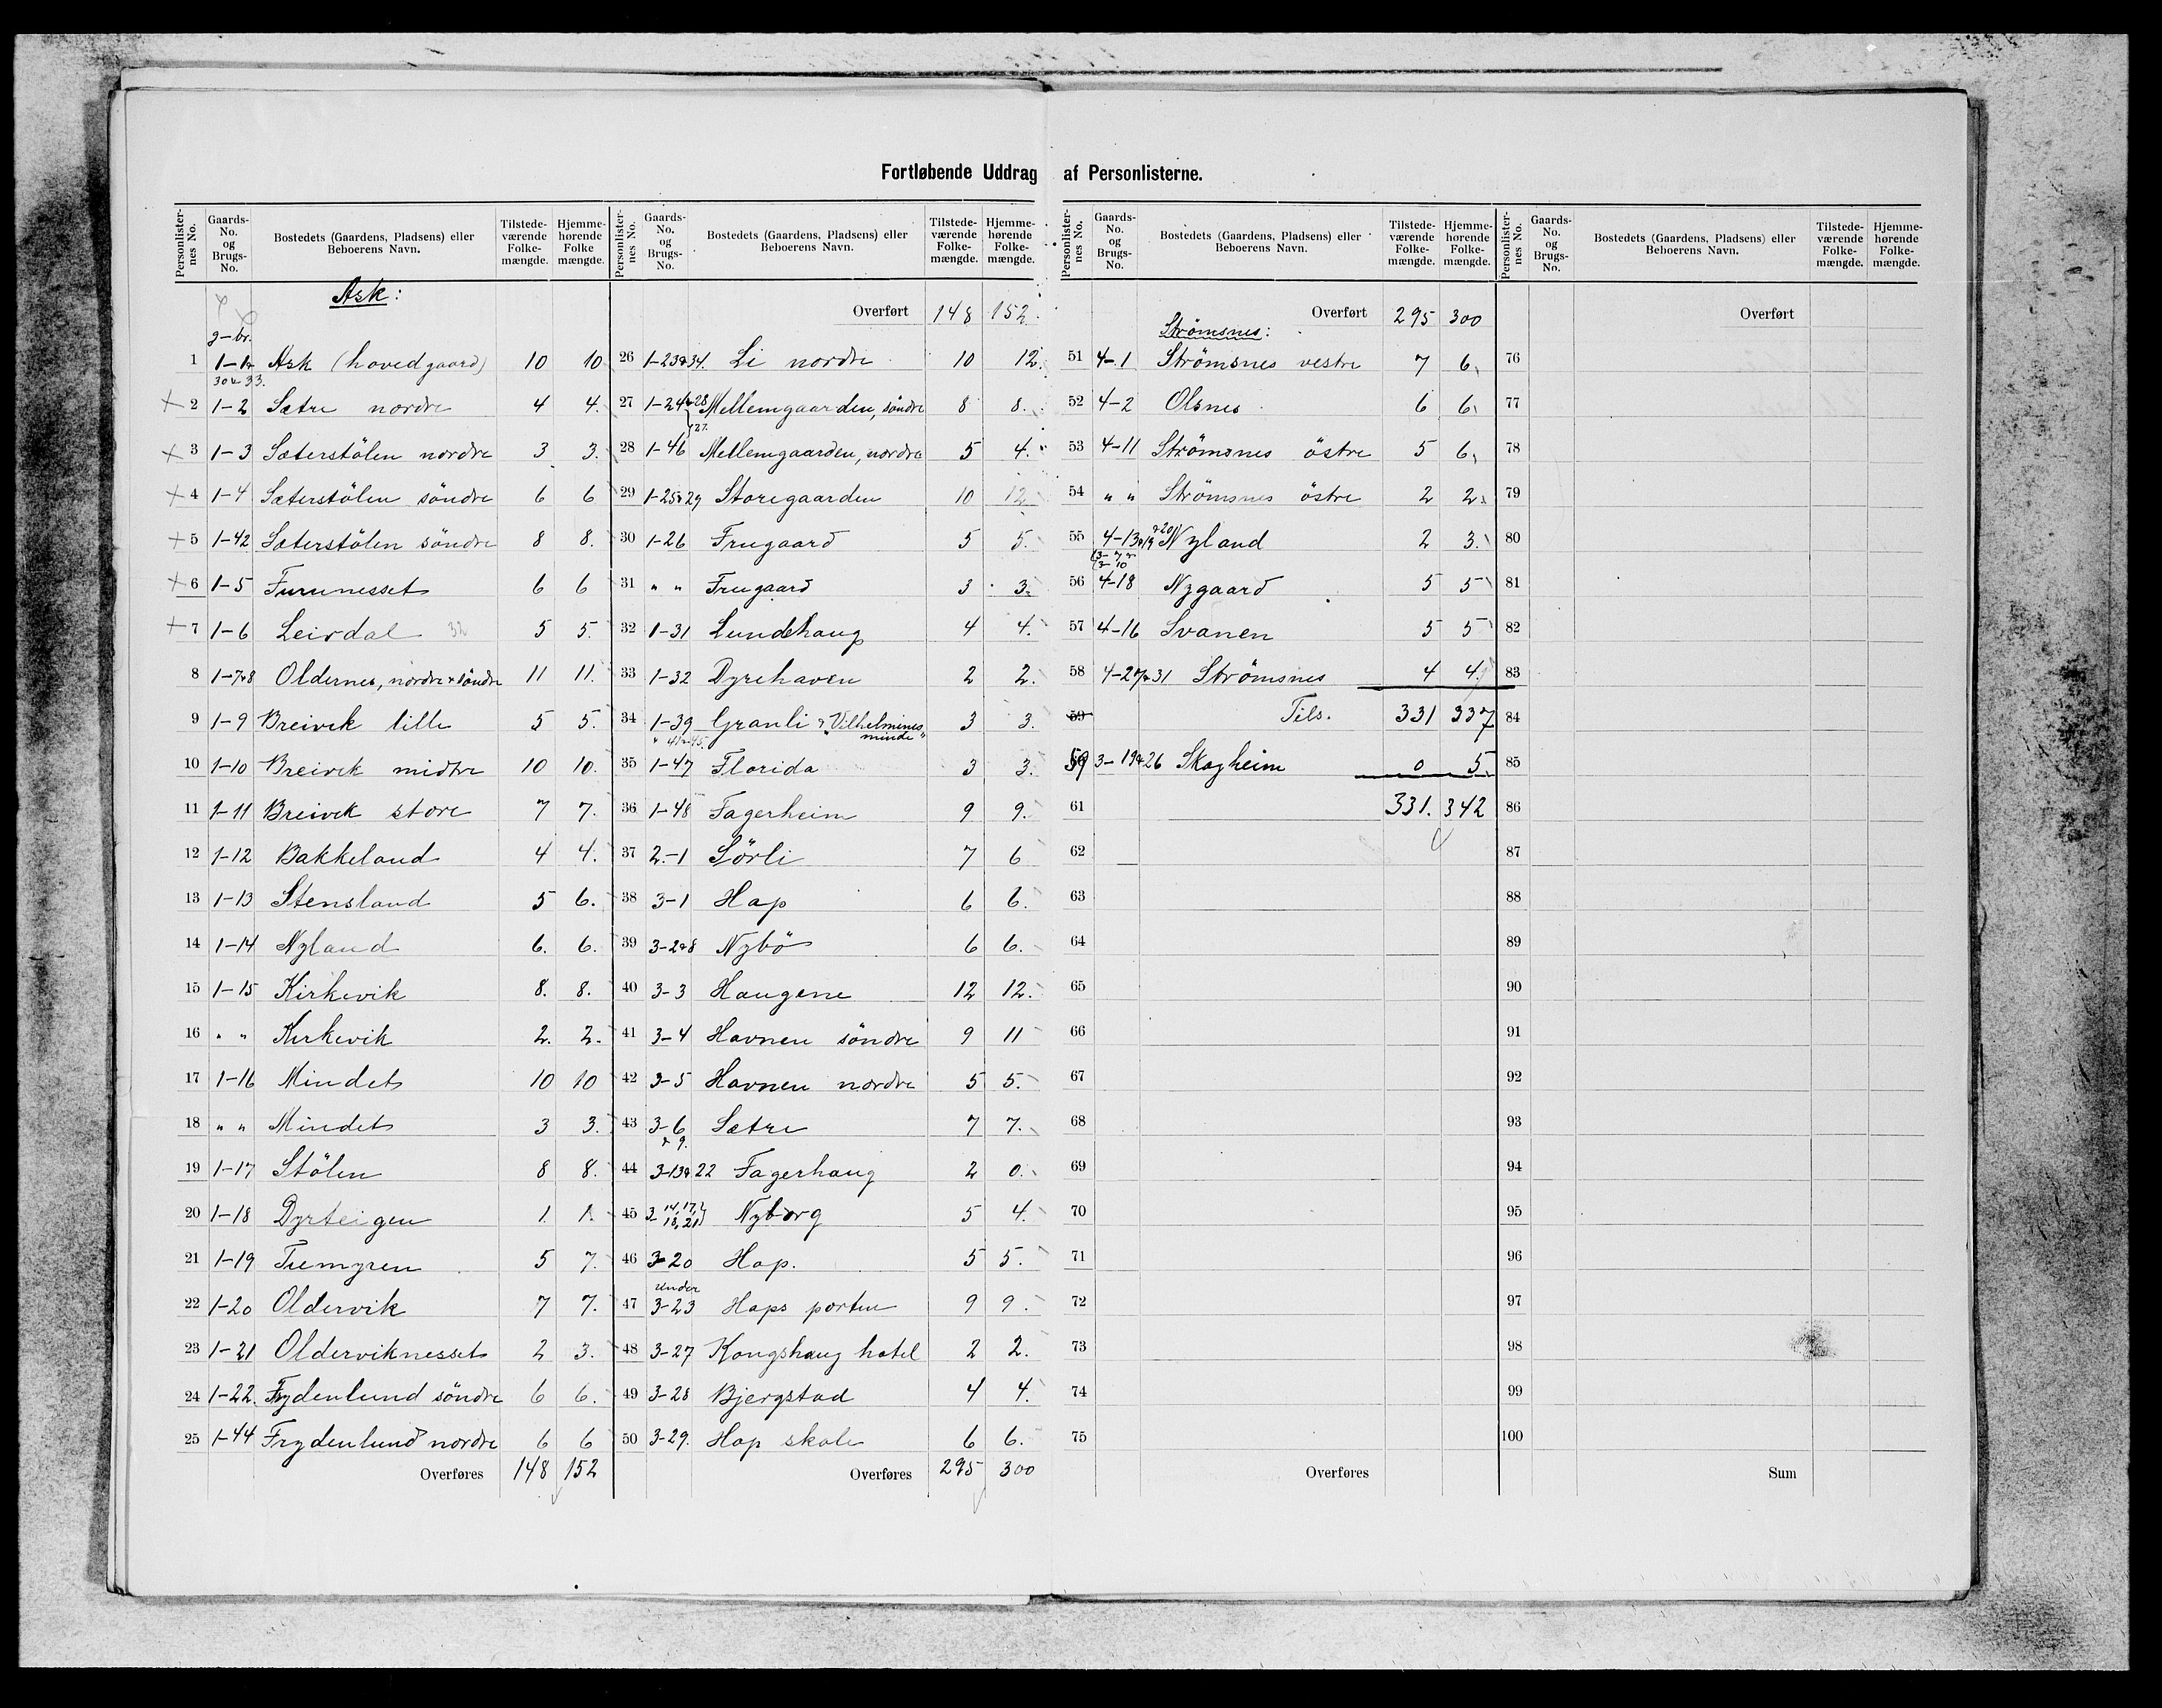 Fortløbende Uddrag af Personlisterne.
Personlister-nes No. | Gaards-No. og Brugs-No. | Bostedets (Gaardens, Pladsens) eller Beboerens Navn. | Tilstede-værende Folke-mængde. | Hjemme-hørende Folke mængde.
Ask:
g-br.
1 1-1 & 30 & 33. Ask (hovedgaard) 10 10
2 1-2 Sætre nordre 4 4.
3 1-3 Sæterstölen nordre 3 3.
4 1-4 Sæterstölen söndre 6 6
5 1-42 Sæterstölen söndre 8 8.
6 1-5 Furunesset 6 6
7 1-6 Leirdal 32 5 5.
8 1-7&8 Oldernes, nordre & söndre 11 11.
9 1-9 Breivik lille 5 5.
10 1-10 Breivik midtre 10 10.
11 1-11 Breivik store 7 7.
12 1-12 Bakkeland 4 4.
13 1-13 Stensland 5 6.
14 1-14 Nyland 6. 6.
15 1-15 Kirkevik 8. 8.
16 " " Kirkevik 2. 2.
17 1-16 Mindet 10 10
18 " " Mindet 3 3.
19 1-17 Stölen 8 8.
20 1-18 Dyrteigen 1. 1.
21 1-19 Tuemyren 5 7.
22 1-20 Oldervik 7 7.
23 1-21 Olderviknesset 2 3.
24 1-22. Frydenlund söndre 6 6.
25 1-44 Frydenlund nordre 6 6
Overføres 148 152
Personlister-nes No. | Gaards-No. og Brugs-No. | Bostedets (Gaardens, Pladsens) eller Beboerens Navn. | Tilstede-værende Folke-mængde. | Hjemme-hørende Folke-mængde.
Overført 148 152.
26 1-23&34. Li nordre 10 12.
27 1-24&28 27. Mellemgaarden, söndre 8 8.
28 1-46 Mellemgaarden, nordre 5 4.
29 1-25&29 Storegaarden 10 12
30 1-26 Frugaard 5 5.
31 " " Frugaard 3 3.
32 1-31 Lundehaug 4 4.
33 1-32 Dyrehaven 2 2.
34 1-39 " 41&45. Granli & "Vilhelmines minde" 3 3.
35 1-47 Florida 3 3.
36 1-48 Fagerheim 9 9.
37 2-1 Sörli 7 6
38 3-1 Hop 6 6.
39 3-2&8 Nybö 6 6.
40 3-3 Haugene 12 12.
41 3-4 Havnen söndre 9 11
42 3-5 Havnen nordre 5 5.
43 3-6 & 9. Sætre 7 7.
44 3-13&22 Fagerhaug 2 0.
45 3- 14, 17, 18, 21 Nyborg 5 4.
46 3-20 Hop. 5 5.
47 under 3-23 Hops porten 9 9.
48 3-27 Kongshaug hotel 2 2.
49 3-28 Bjergstad 4 4.
50 3-29. Hop skole 6 6.
Overføres 295 300
Personlister-nes No. | Gaards-No. og Brugs-No. | Bostedets (Gaardens, Pladsens) eller Beboerens Navn. | Tilstede-værende Folke-mængde. | Hjemme-hørende Folke-mængde.
Overført 295 300
Strömsnes:
51 4-1 Strömsnes vestre 7 6
52 4-2 Olsnes 6 6
53 4-11 Strömsnes östre 5 6
54 " " Strömsnes östre 2 2
55 4-13&19 &20 Nyland 2 3.
56 4-18 Nygaard 5 5
57 4-16 Svanen 5 5
58 4-27&31 Strömsnes 4 4
59 Tils. 331 337
59 3-19&26 Skogheim 0 5
61 331. 342
62
63
64
65
66
67
68
69
70
71
72
73
74
75
Overføres
Personlister-nes No. | Gaards-No. og Brugs-No. | Bostedets (Gaardens, Pladsens) eller Beboerens Navn. | Tilstede-værende Folke-mængde. | Hjemme-hørende Folke-mængde.
Overført
76
77
78
79
80
81
82
83
84
85
86
87
88
89
90
91
92
93
94
95
96
97
98
99
100
Sum